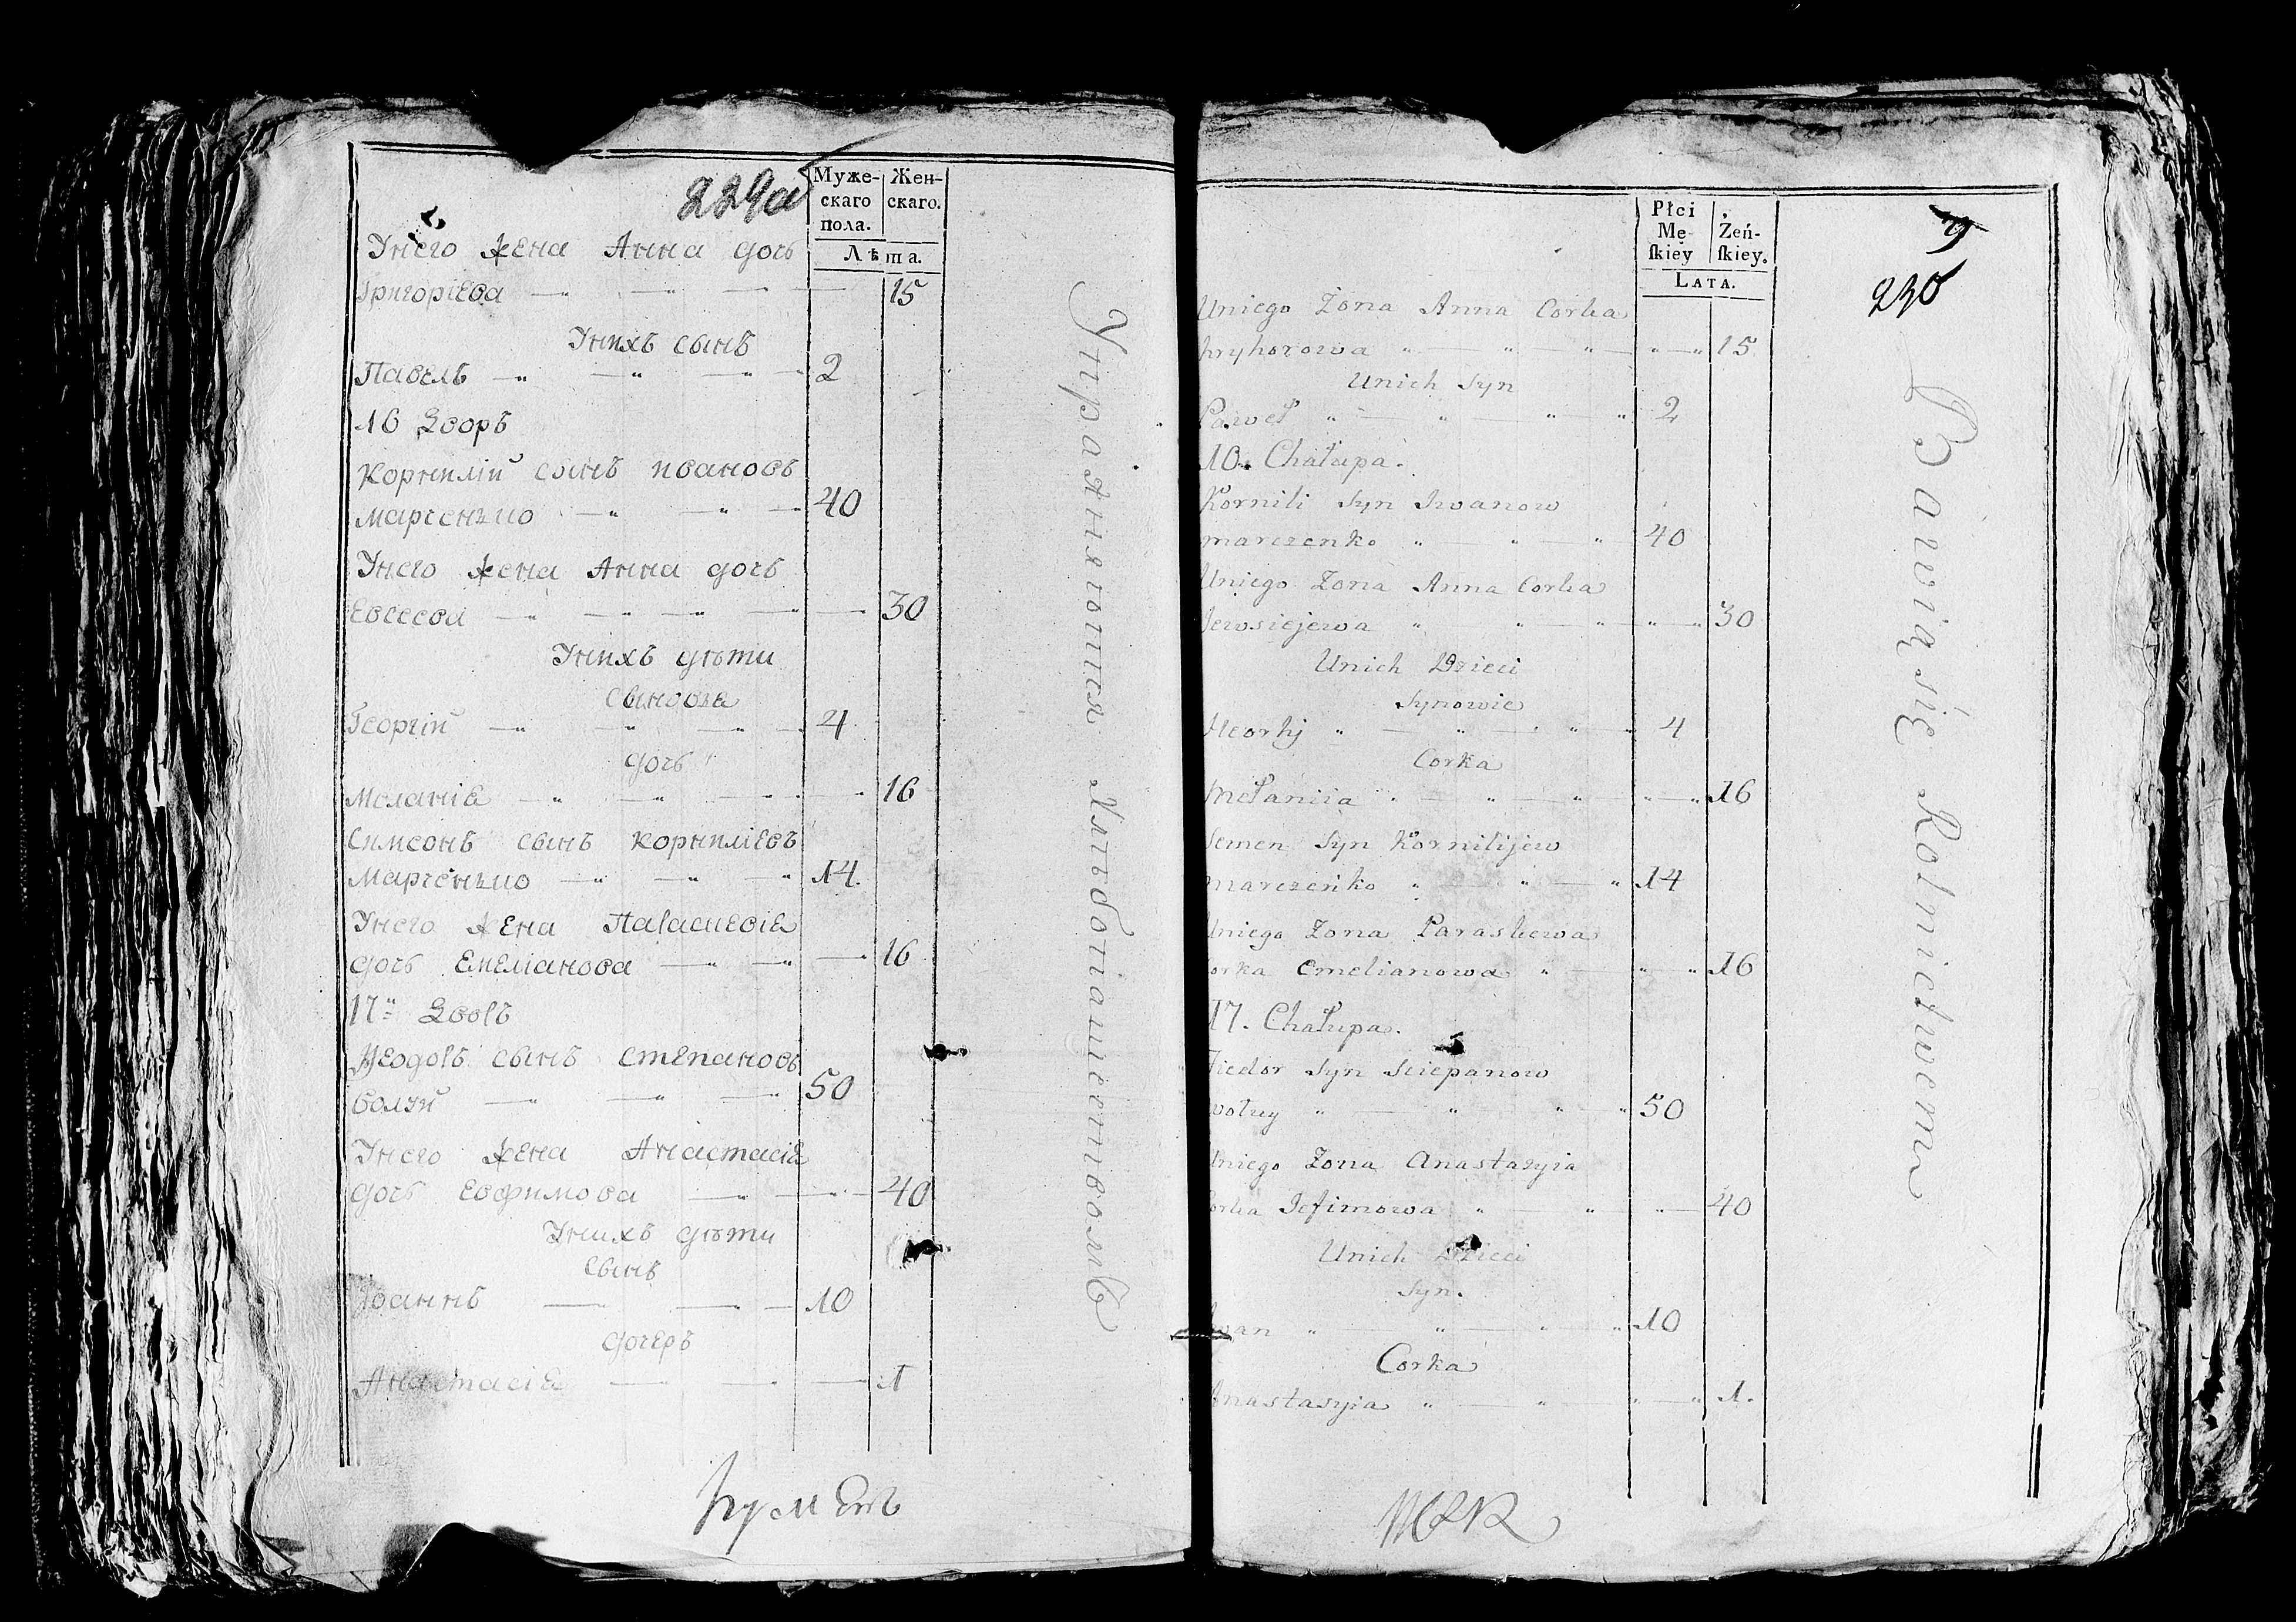 229об
Муже-
скаго
пола.
Жен-
скаго.
Лѣта.
Унего жена Анна дочь
Григоріева 15
Унихъ сынъ
Павелъ 2
16 Дворъ
Корнилій сынъ Ивановъ
Марченко 40
Унего жена Анна дочь
Евсеева 30
Унихъ дѣти
Сыновья
Георгій 4
дочь
Меланіа 16
Симеонъ сынъ Корниліевъ
Марченко 14
Унего жена Параскевіа
дочь Емеліанова 16
17 Дворъ
Ѳеодоръ сынъ Степановъ
Волуй 50
Унего жена Анастасіа
дочь Евфимова 40
Унихъ дѣти
Сынъ
Іоаннъ 10
дочерь
Анастасіа 1
Упражняютися Хлѣбопашествомъ
Płci
Mę-
ſkiey
Żeń-
ſkiey.
LATA.
230
Uniego Zona Anna Corka
hryhorowa 15
Unich Syn
Paweł 2
16. Chałupa.
Kornili Syn Iwanow
marczenko 40
Uniego Zona Anna Corka
Jewsiejewa 30
Unich Dzieci
Synowie
Heorhj 4
Corka
Mełaniia 16
Semen Syn Kornilijew
marczenko 14
Uniego Zona Paraskewa
orka Emelianowa 16
17. Chałupa.
Fiedor Syn Sciepanow
wołuy 50
Uniego Zona Anastazyia
Corka Jefimowa 40
Unich Dzieci
Syn.
Iwan 10
Corka
Anastazyia 1.
Bawią się Rolnictwem